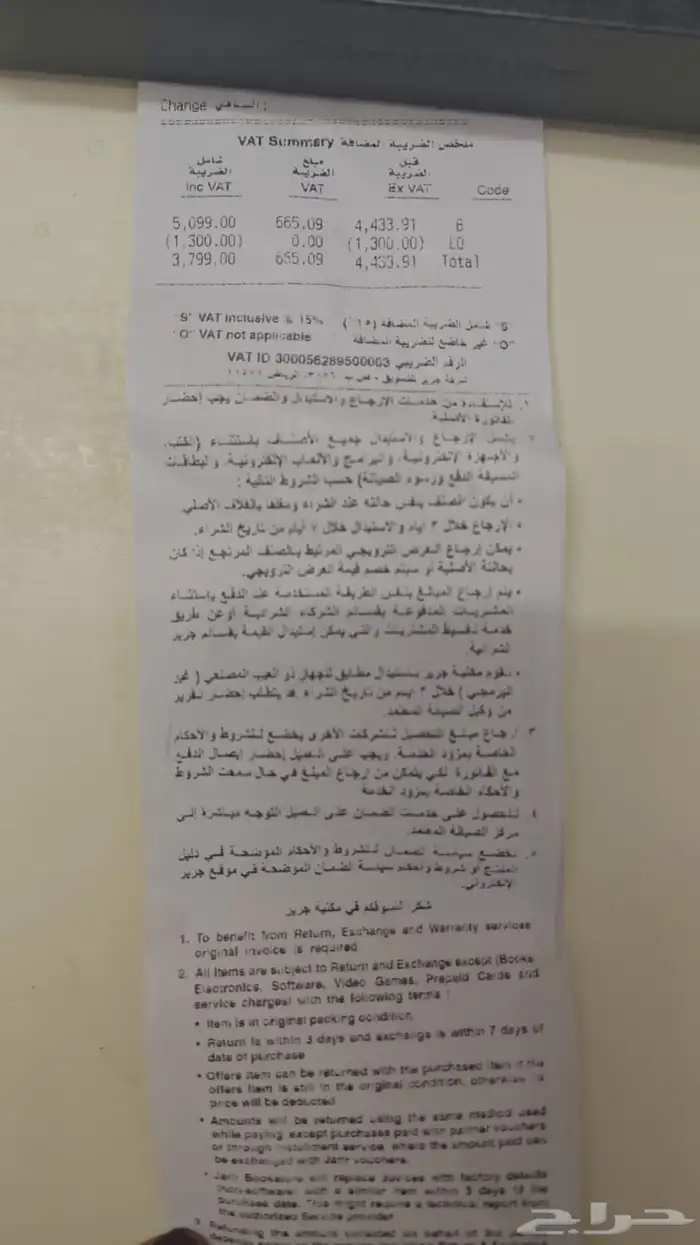 Change الباقي :
ملخص الضريبة لمضافة VAT Summary
شامل الضريبة Inc VAT
مبلغ الضريبة VAT
قبل الضريبة Ex VAT
Code
5,099.00 665.09 4,433.91
(1,300.00) 0.00 (1,300.00)
3,799.00 665.09 4,433.91 Total
"S" VAT inclusive & 15% "S" شامل الضريبة المضافة (١٥٪)
"O" VAT not applicable "O" غير خاضع لضريبة المضافة
VAT ID 300056289500003 الرقم الضريبي
شركة جرير للتسويق - ص ب ٣١٩٦، الرياض ١١٤٧١
١. للإستفادة من خدمات الإرجاع والاستبدال والضمان يجب إحضار
لفاتورة الأصلية.
٢. يشمل الإرجاع والاستبدال جميع الأصناف باستثناء (الكتب،
والأجهزة الإلكترونية، والبرامج والألعاب الإلكترونية، والبطاقات
المسبقة الدفع ورسوم الصيانة) حسب الشروط التالية :
• أن يكون الصنف بنفس حالته عند الشراء ومغلفا بالغلاف الأصلي
• الإرجاع خلال ٣ أيام والاستبدال خلال ٧ أيام من تاريخ الشراء.
• يمكن إرجاع العرض الترويجي المرتبط بالصنف المرتجع إذا كان
بحالته الأصلية أو سيتم خصم قيمة العرض الترويجي.
• يتم إرجاع المبالغ بنفس الطريقة المستخدمة عند الدفع باستثناء
المشتريات المدفوعة بقسائم الشركاء الشرائية أو عن طريق
خدمة تقسيط المشتريات والتي يمكن إستبدال القيمة بقسائم جرير
الشرائية.
• تقوم مكتبة جرير باستبدال مطابق للجهاز ذو العيب المصنعي ( غير
البرمجي ) خلال ٣ أيام من تاريخ الشراء .قد يتطلب إحضار تقرير
من وكيل الصيانة المعتمد.
٣. إرجاع مبلغ التحصيل للشركات الأخرى يخضع للشروط والأحكام
الخاصة بمزود الخدمة. ويجب على العميل إحضار إيصال الدفع
مع الفاتورة لكي يتمكن من إرجاع المبلغ في حال سمحت الشروط
والأحكام الخاصة بمزود الخدمة
٤. للحصول على خدمات الضمان على العميل التوجه مباشرة إلى
مركز الصيانة المعتمد.
٥. تخضع سياسة الضمان للشروط والأحكام الموضحة في دليل
المنتج أو شروط وأحكام سياسة الضمان الموضحة في موقع جرير
الإلكتروني.
شكر لتسوقكم في مكتبة جرير
1. To benefit from Return, Exchange and Warranty services
original invoice is required
2. All Items are subject to Return and Exchange except (Books
Electronics, Software, Video Games, Prepaid Cards and
service charges) with the following terms :
• Item is in original packing condition
• Return is within 3 days and exchange is within 7 days of
date of purchase
• Offers item can be returned with the purchased item if the
offers item is still in the original condition, otherwise
price will be deducted
• Amounts will be returned using the same method used
while paying except purchases paid with partner vouchers
or through installment service, where the amount paid can
be exchanged with Jarir vouchers.
• Jarir Bookstore will replace devices with factory defects
(non-software) with a similar item within 3 days of the
purchase date. This might require a technical report from
the authorized Service provider
3. Refunding the amount collected on behalf of
حراج